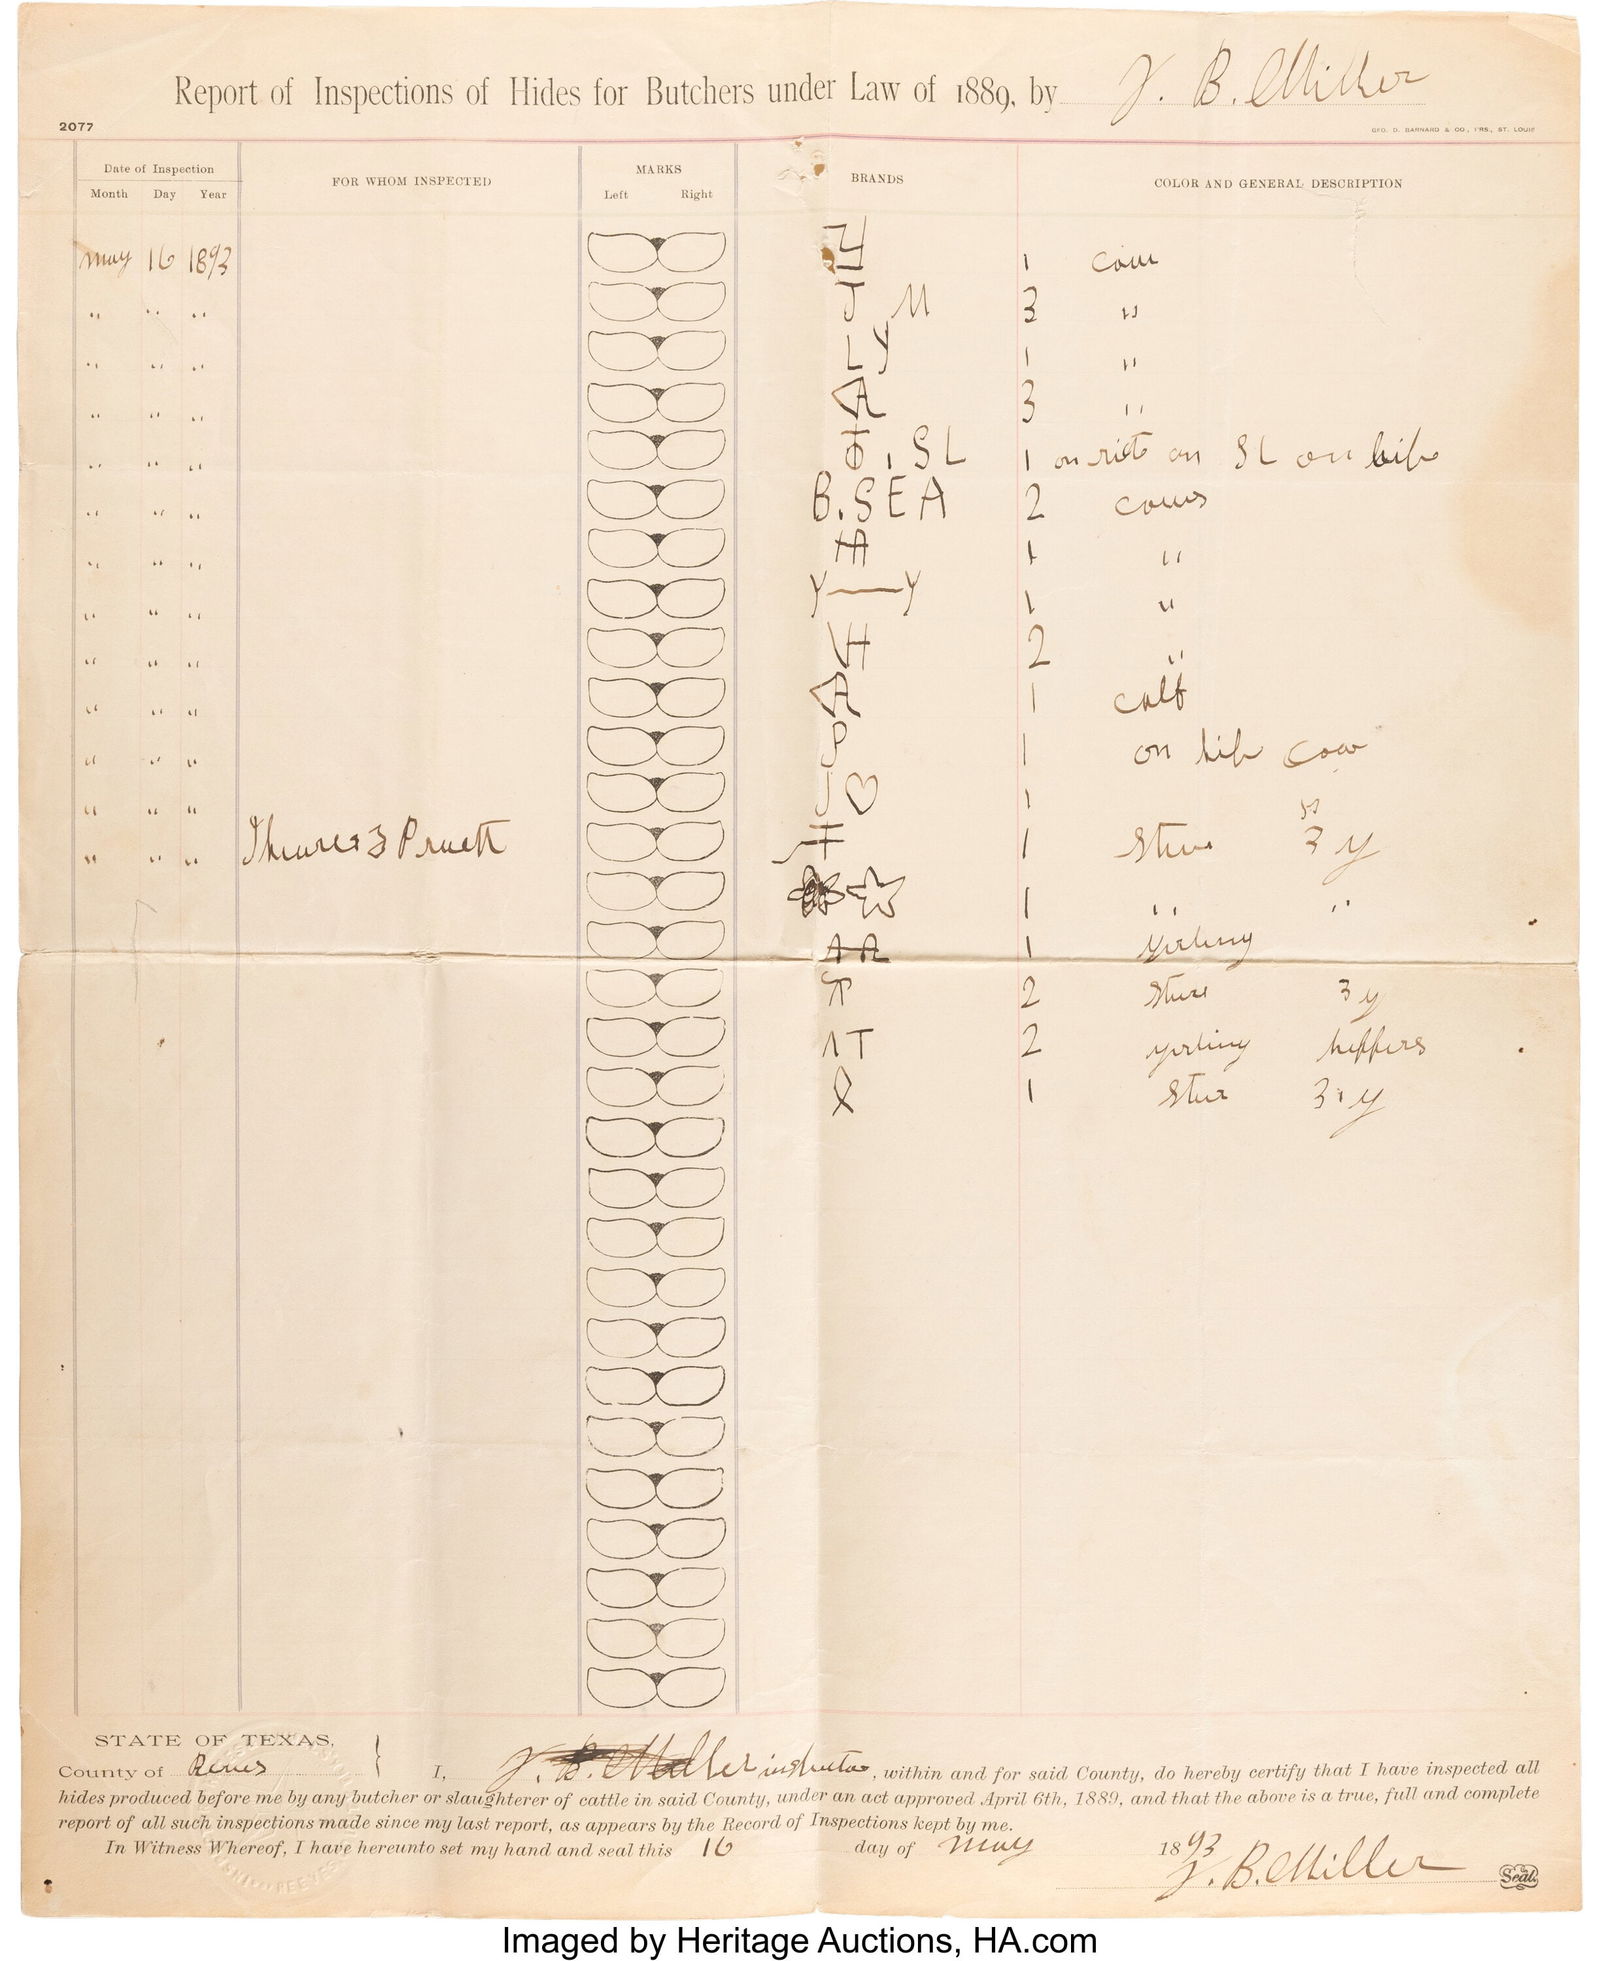 Report of Inspections of Hides for Butchers under Law of 1889, by J. B. Miller
2077
GEO. D. BARNARD & CO., PRS., ST. LOUIS
Date of Inspection
Month Day Year
FOR WHOM INSPECTED
MARKS
Left Right
BRANDS
COLOR AND GENERAL DESCRIPTION
may 16 1893 1 cow
" " " J M 3 "
" " " LY 1 "
" " " A 3 "
" " " SL 1 on SL on hip
" " " B.SEA 2 cows
" " " HA 1 "
" " " Y—Y 1 "
" " " VH 2 "
" " " A 1 calf
" " " P 1 on hip cow
" " " J ♡ 1 "
" " " & Pruett 1 3 y
☆ 1 " "
A A 1 yirling
2 3 y
T 2 yirling heffirs
1 3 y
STATE OF TEXAS,
County of Reves } I, J. B. Miller , within and for said County, do hereby certify that I have inspected all
hides produced before me by any butcher or slaughterer of cattle in said County, under an act approved April 6th, 1889, and that the above is a true, full and complete
report of all such inspections made since my last report, as appears by the Record of Inspections kept by me.
In Witness Whereof, I have hereunto set my hand and seal this 16 day of may 1893
J. B. Miller Seal.
REEVES
Imaged by Heritage Auctions, HA.com